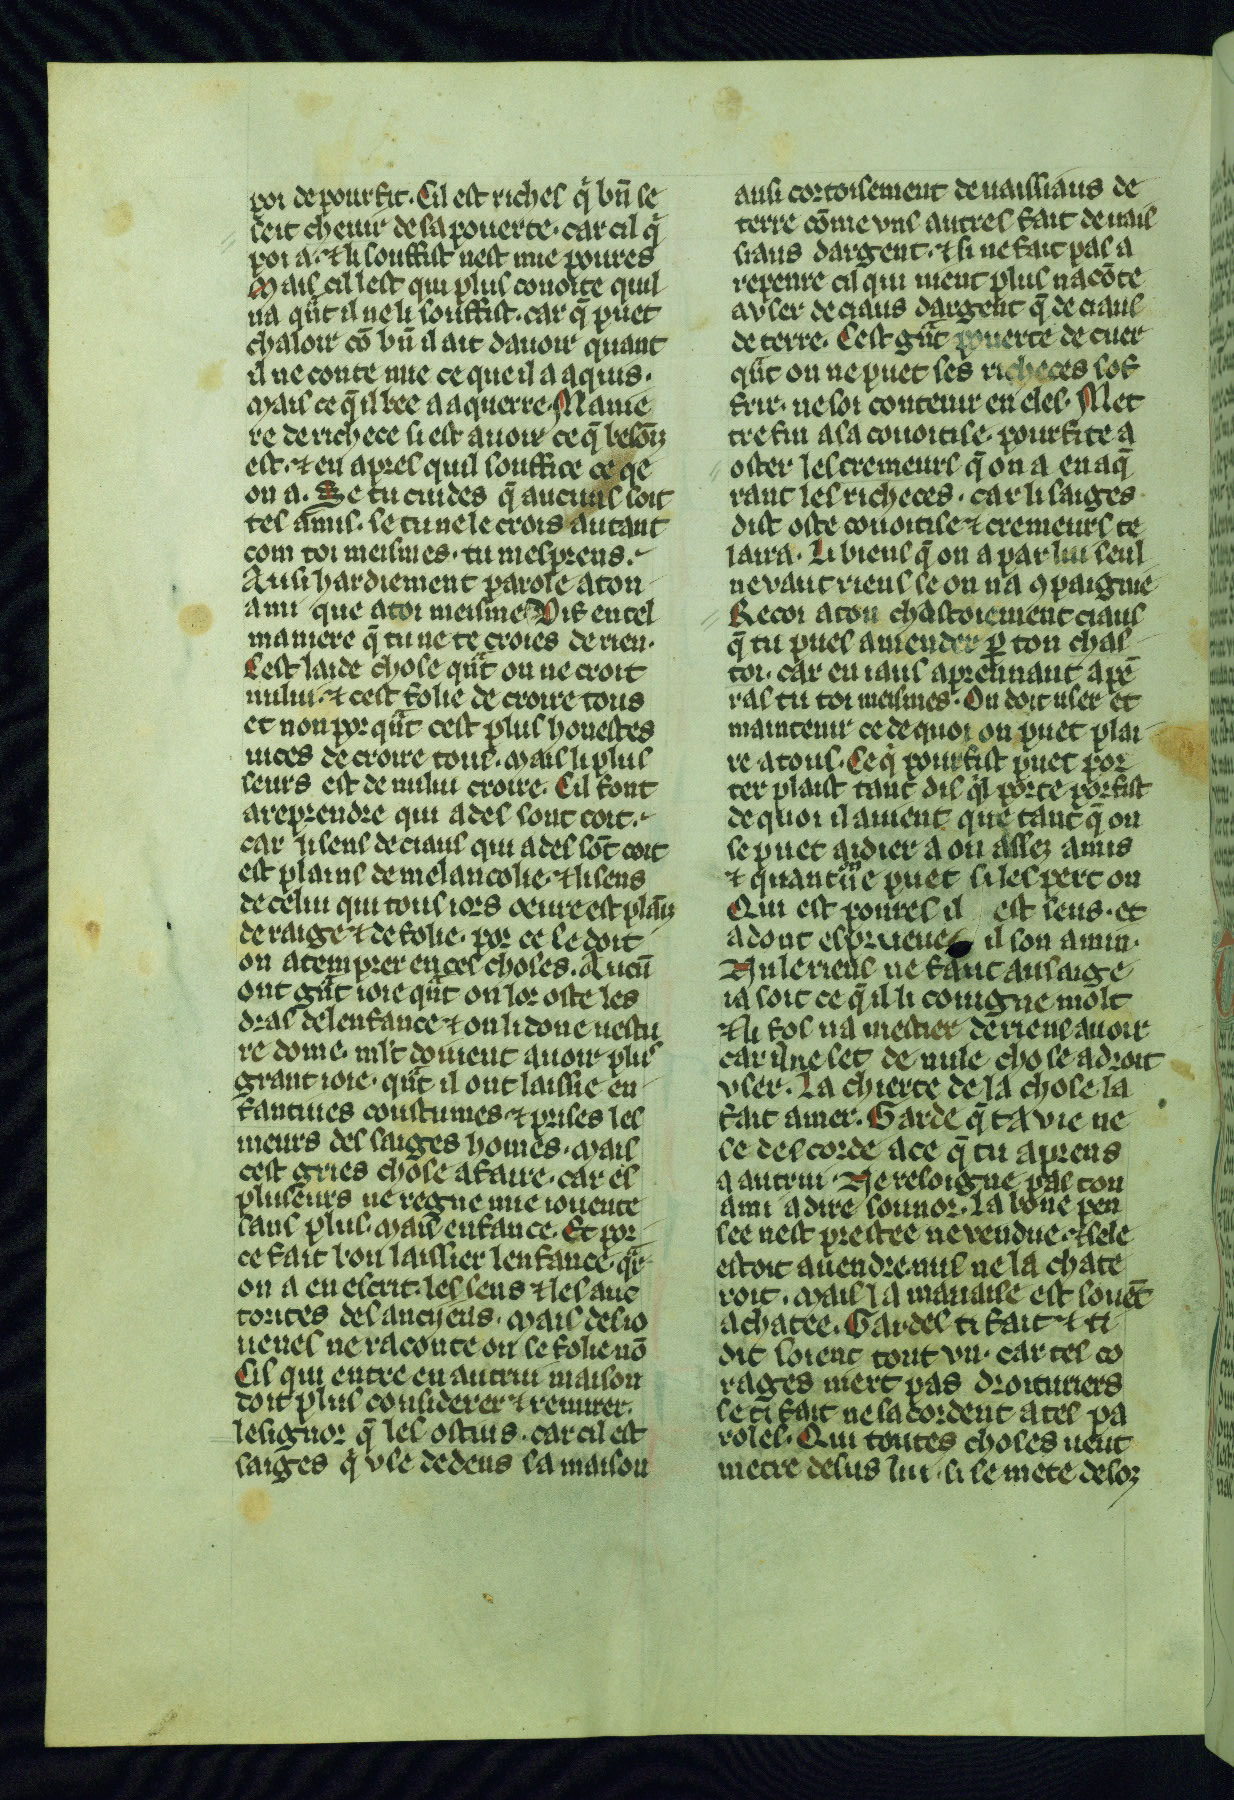 poi de pourfit. Cil est riches q̃ bn̄ se
seit chevir de sa poverte. car cil q̃
poi a. ⁊ li souffist nest mie poures
Mais cil lest qui plus covoite quil
na qũt il ne li souffist. car q̃ puet
chaloir cō bn̄ il ait davoir quant
il ne conte mie ce que il a aquis.
mais ce q̃ il bee a aquerre. Manie
re de richece si est avoir ce q̃ besoīz
est. ⁊ en apres quil souffice ce qe
on a. Se tu cuides q̃ aucuns soit
tes amis. se tu ne le crois autant
com toi meismes. tu mesprens.
Ausi hardiement parole a ton
ami que a toi meisme Vif en tel
maniere q̃ tu ne te croies de rien.
Cest laide chose qũt on ne croit
nului. ⁊ cest folie de croire tous
et non por qũt cest plus honestes
vices de croire tous. mais li plus
seurs est de nului croire. Cil font
a reprendre qui ades sont coit.
car li sens de ciaus qui ades sōt coit
est plains de melancolie. ⁊ li sens
de celui qui tous iors oeuvre est plaīs
de raige ⁊ de folie. por ce se doit
on atemprer en ces choses. Aucū
ont gñt ioie qũt on lor oste les
dras delenfance ⁊ on li done vestu
re dome. mlt doivent avoir plus
grant ioie. qũt il ont laissie en
fantives coustumes ⁊ prises les
meurs des saiges homes. mais
cest gries chose a faire. car es
pluseurs ne regne mie iovente
sans plus. mais enfance. Et por
ce fait bon laissier lenfance. q̃r
on a en escrit. les sens ⁊ les auc
torites des anciiens. mais des io
venes ne raconte on se folie nō
Cils qui entre en autrui maison
doit plus considerer ⁊ remirer.
le signor q̃ les ostius. car cil est
saiges q̃ use dedens sa maison
ausi cortoisement de vaissiaus de
terre cōme uns autres fait de vais
siaus dargent. ⁊ si ne fait pas a
repenre cil qui nient plus na cōte
a user de ciaus dargent q̃ de ciaus
de terre. Cest gñt poverte de cuer
qũt on ne puet ses richeces sof
frir. ne soi contenir en eles. Met
tre fin a sa covoitise. pourfite a
oster les cremeurs q̃ on a en aq̃
rant les richeces. car li saiges
dist oste covoitise ⁊ cremeurs te
laira. Li biens q̃ on a par lui seul
ne vaut riens se on na ꝯpaignie
Recoi a ton chastoiement ciaus
q̃ tu pues amender ꝑ ton chas
toi. car en iaus aprennant apē
ras tu toi meismes. On doit user et
maintenir ce de quoi on puet plai
re a tous. Ce q̃ pourfist puet por
ter plaist tant dis q̃l porte porfist
de quoi il avient que tant q̃ on
se puet aidier a on assez amis
⁊ quant ū ne puet si les pert on
Qui est poures il est seus. et
adont esprueve il son amin.
Nule riens ne faut au saige
ia soit ce q̃ il li covigne molt
⁊ li fol na mestier de riens avoir
car il ne set de nule chose a droit
user. La chierte de la chose la
fait amer. Garde q̃ ta vie ne
se descorde a ce q̃ tu aprens
a autrui. Ne resoigne pas ton
ami a dire sounor. La bone pen
see nest prestee ne vendue. ⁊ sele
estoit a vendre. nus ne la chate
roit. mais la mauvaise est souēt
achatee. Gardes ti fait ⁊ ti
dit soient tout un. car tel co
rages niert pas droituriers
se ti fait ne sacordent a tes pa
roles. Qui toutes choses veut
metre desus lui. si se mete desoz